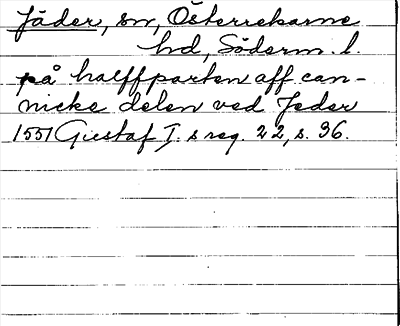 Jäder, sn, Österrekarne
hd, Söderm. l.
på halffparten aff can-
nicke delen ved Jeder
1551 Gustaf I. s reg. 22, s. 36.